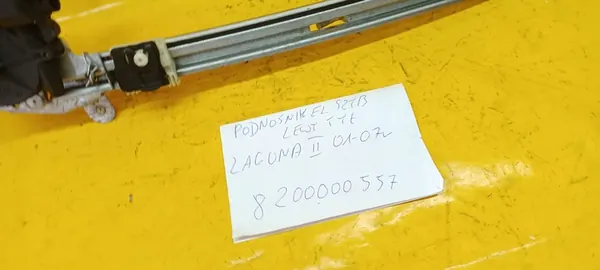 PODNOŚNIK EL SZYB
LEWY TYŁ
LAGUNA II 01-07r
8200000557